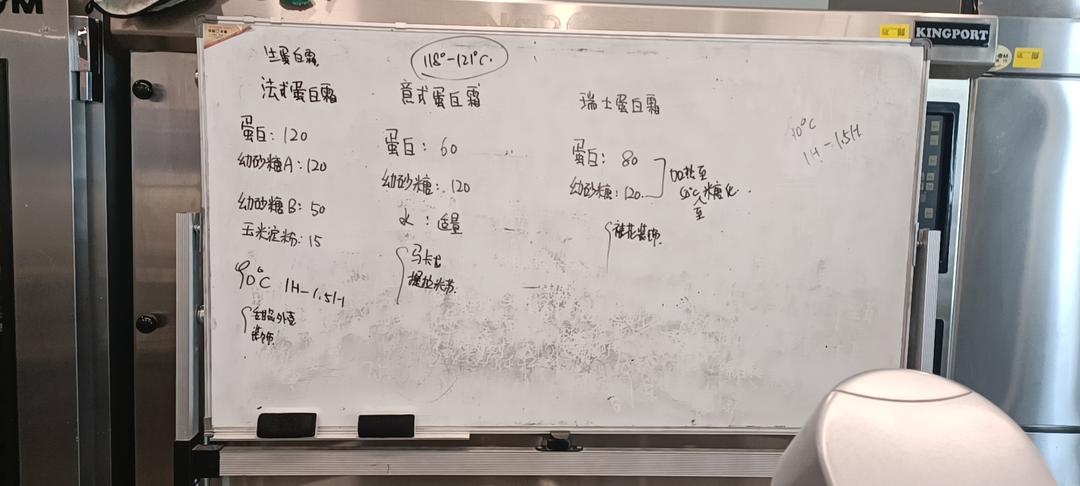 KINGPORT
生蛋白霜
法式蛋白霜
蛋白：120
幼砂糖A：120
幼砂糖B：50
玉米淀粉：15
90°C 1H-1.5H
装饰
118°-121°C.
意式蛋白霜
蛋白：60
幼砂糖：120
水：适量
马卡龙
提拉米苏
瑞士蛋白霜
蛋白：80
幼砂糖：120
糖化
裱花装饰
90°C
1H-1.5H